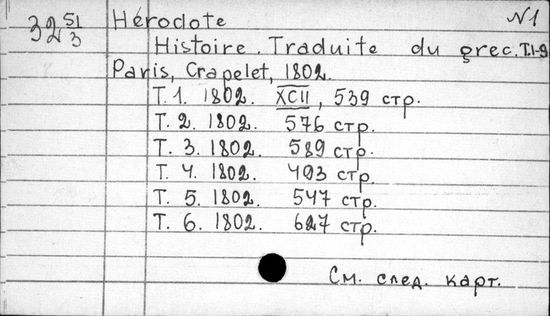 32 51/3 Hérodote N1
Histoire. Traduite du grec. T.1-9
Paris, Crapelet, 1802.
T. 1. 1802. XCII, 539 стр.
T. 2. 1802. 576 стр.
T. 3. 1802. 589 стр.
T. 4. 1802. 493 стр.
T. 5. 1802. 547 стр.
T. 6. 1802. 627 стр.
См. след. карт.